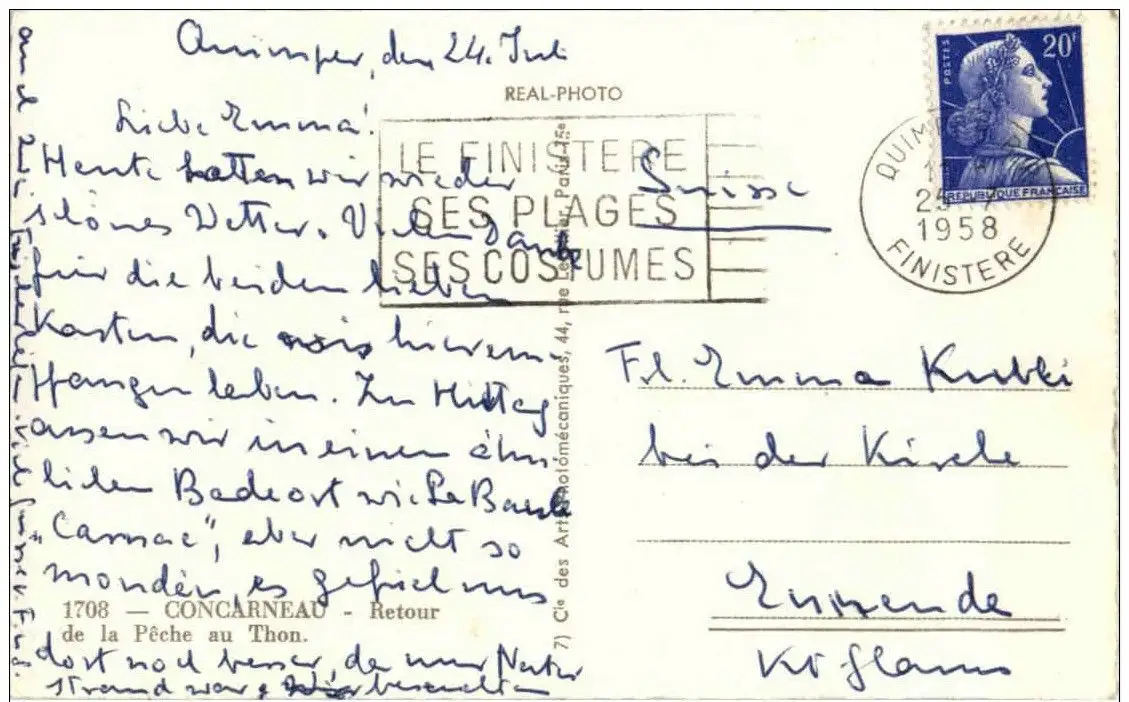 Quimper, den 24. Juli
Liebe Emma!
Heute hatten wir wieder
schönes Wetter. Vielen Dank
für die beiden lieben
Karten, die wir hier em-
pfangen haben. Zu Mittag
assen wir in einem ähn
lichen Badeort wie La Baule
"Carnac", aber nicht so
mondän, es gefiel uns
dort noch besser, da nur Natur
strand war,
viele Grüsse v.
REAL-PHOTO
LE FINISTERE
SES PLAGES
SES COSTUMES
7) Cie des Arts Photomécaniques, 44, rue Letellier, Paris-15e
1708 — CONCARNEAU - Retour
de la Pêche au Thon.
POSTES
20F
REPUBLIQUE FRANÇAISE
QUIMPER
1958
FINISTERE
Suisse
Frl. Emma Kubli
bei der Kirche
Ennenda
Kt Glarus